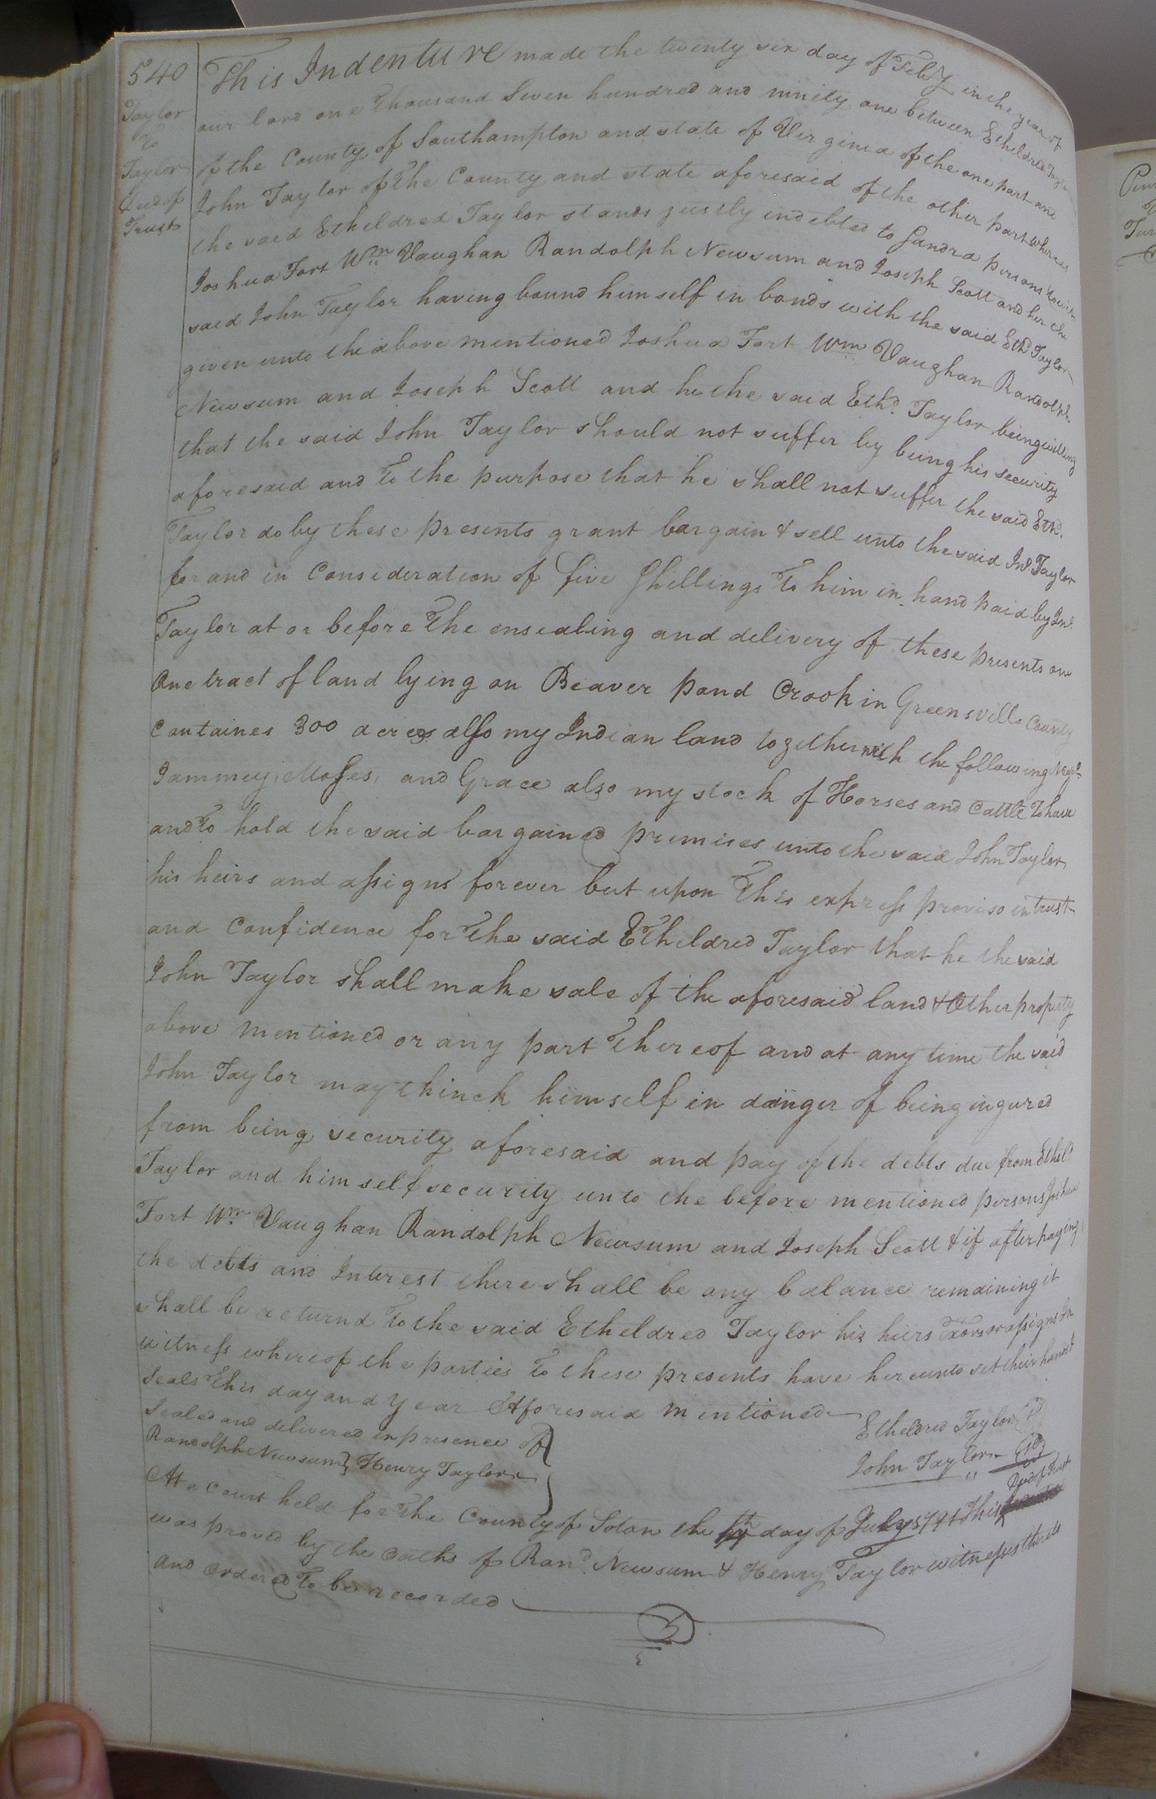 540
Taylor
to
Taylor
Deed of
Trust
This Indenture made the twenty six day of Feby in the year of
our lord one Thousand Seven hundred and ninity one between Etheldred Taylor
of the County of Southampton and state of Virginia of the one part and
John Taylor of the County and state aforesaid of the other part whereas
the said Etheldred Taylor stands justly indebted to Sundra persons
Joshua Fort Wm Vaughan Randolph Newsum and Joseph Scott and he the
said John Taylor having bound himself in bonds with the said Ethd Taylor
given unto the above mentioned Joshua Fort Wm Vaughan Randolph
Newsum and Joseph Scott and he the said Ethd. Taylor being willing
that the said John Taylor should not suffer by being his security
aforesaid and to the purpose that he shall not suffer the said Ethd.
Taylor do by these presents grant bargain & sell unto the said Jno Taylor
for and in Consideration of five Shillings to him in hand paid by Jno.
Taylor at or before The ensealing and delivery of these presents
One tract of land lying on Beaver pond Crook in Greensville County
Containes 300 acres also my Indian land together with the following
Jammey, Moses, and Grace also my stock of Horses and Cattle to have
and to hold the said bargained premises unto the said John Taylor
his heirs and assigns forever but upon This express proviso in trust
and Confidence for The said Etheldred Taylor that he the said
John Taylor shall make sale of the aforesaid land & Other property
above mentioned or any part Thereof and at any time the said
John Taylor may thinck himself in dainger of being ingured
from being security aforesaid and pay of the debts due from Etheld
Taylor and himself security unto the before mentioned persons Joshua
Fort Wm. Vaughan Randolph Newsum and Joseph Scott & if after paying
the debts and Interest there shall be any balance remaining it
shall be returnd to the said Etheldred Taylor his heirs Exors or assigns In
witness whereof the parties to these presents have hereunto set their hands &
Seals This day and year Aforesaid mentioned
Sealed and delivered in presence of
Randolph Newsum, Henry Taylor
Etheldred Taylor
John Taylor
At a Court held for The County of Soton the day of July 1791 This Deed of Trust
was proved by the oaths of Rand. Newsum & Henry Taylor witnesses thereto
and ordered To be recorded